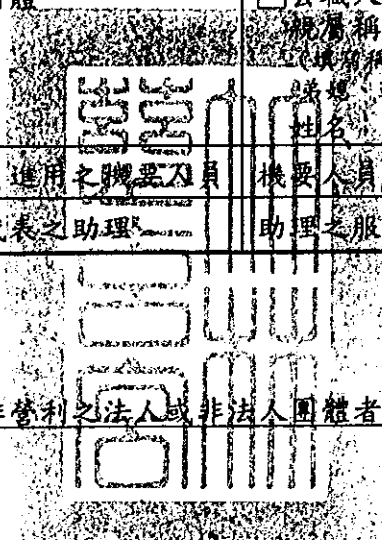 體 □公職人
親屬稱
(填寫稱
弟媳
姓名
進用之機要人員 機要人員
表之助理 助理之服
營利之法人或非法人團體者